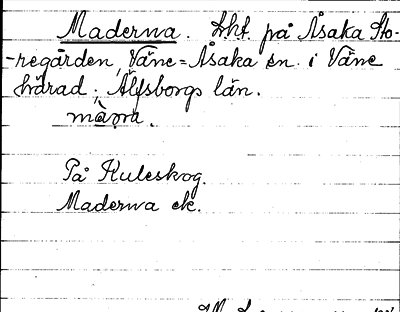 Maderna. Lht. på Åsaka Sto-
-regården, Väne-Åsaka sn. i Väne
härad, Älfsborgs län.
màɷra.
På Kuleskog.
Maderna ek.